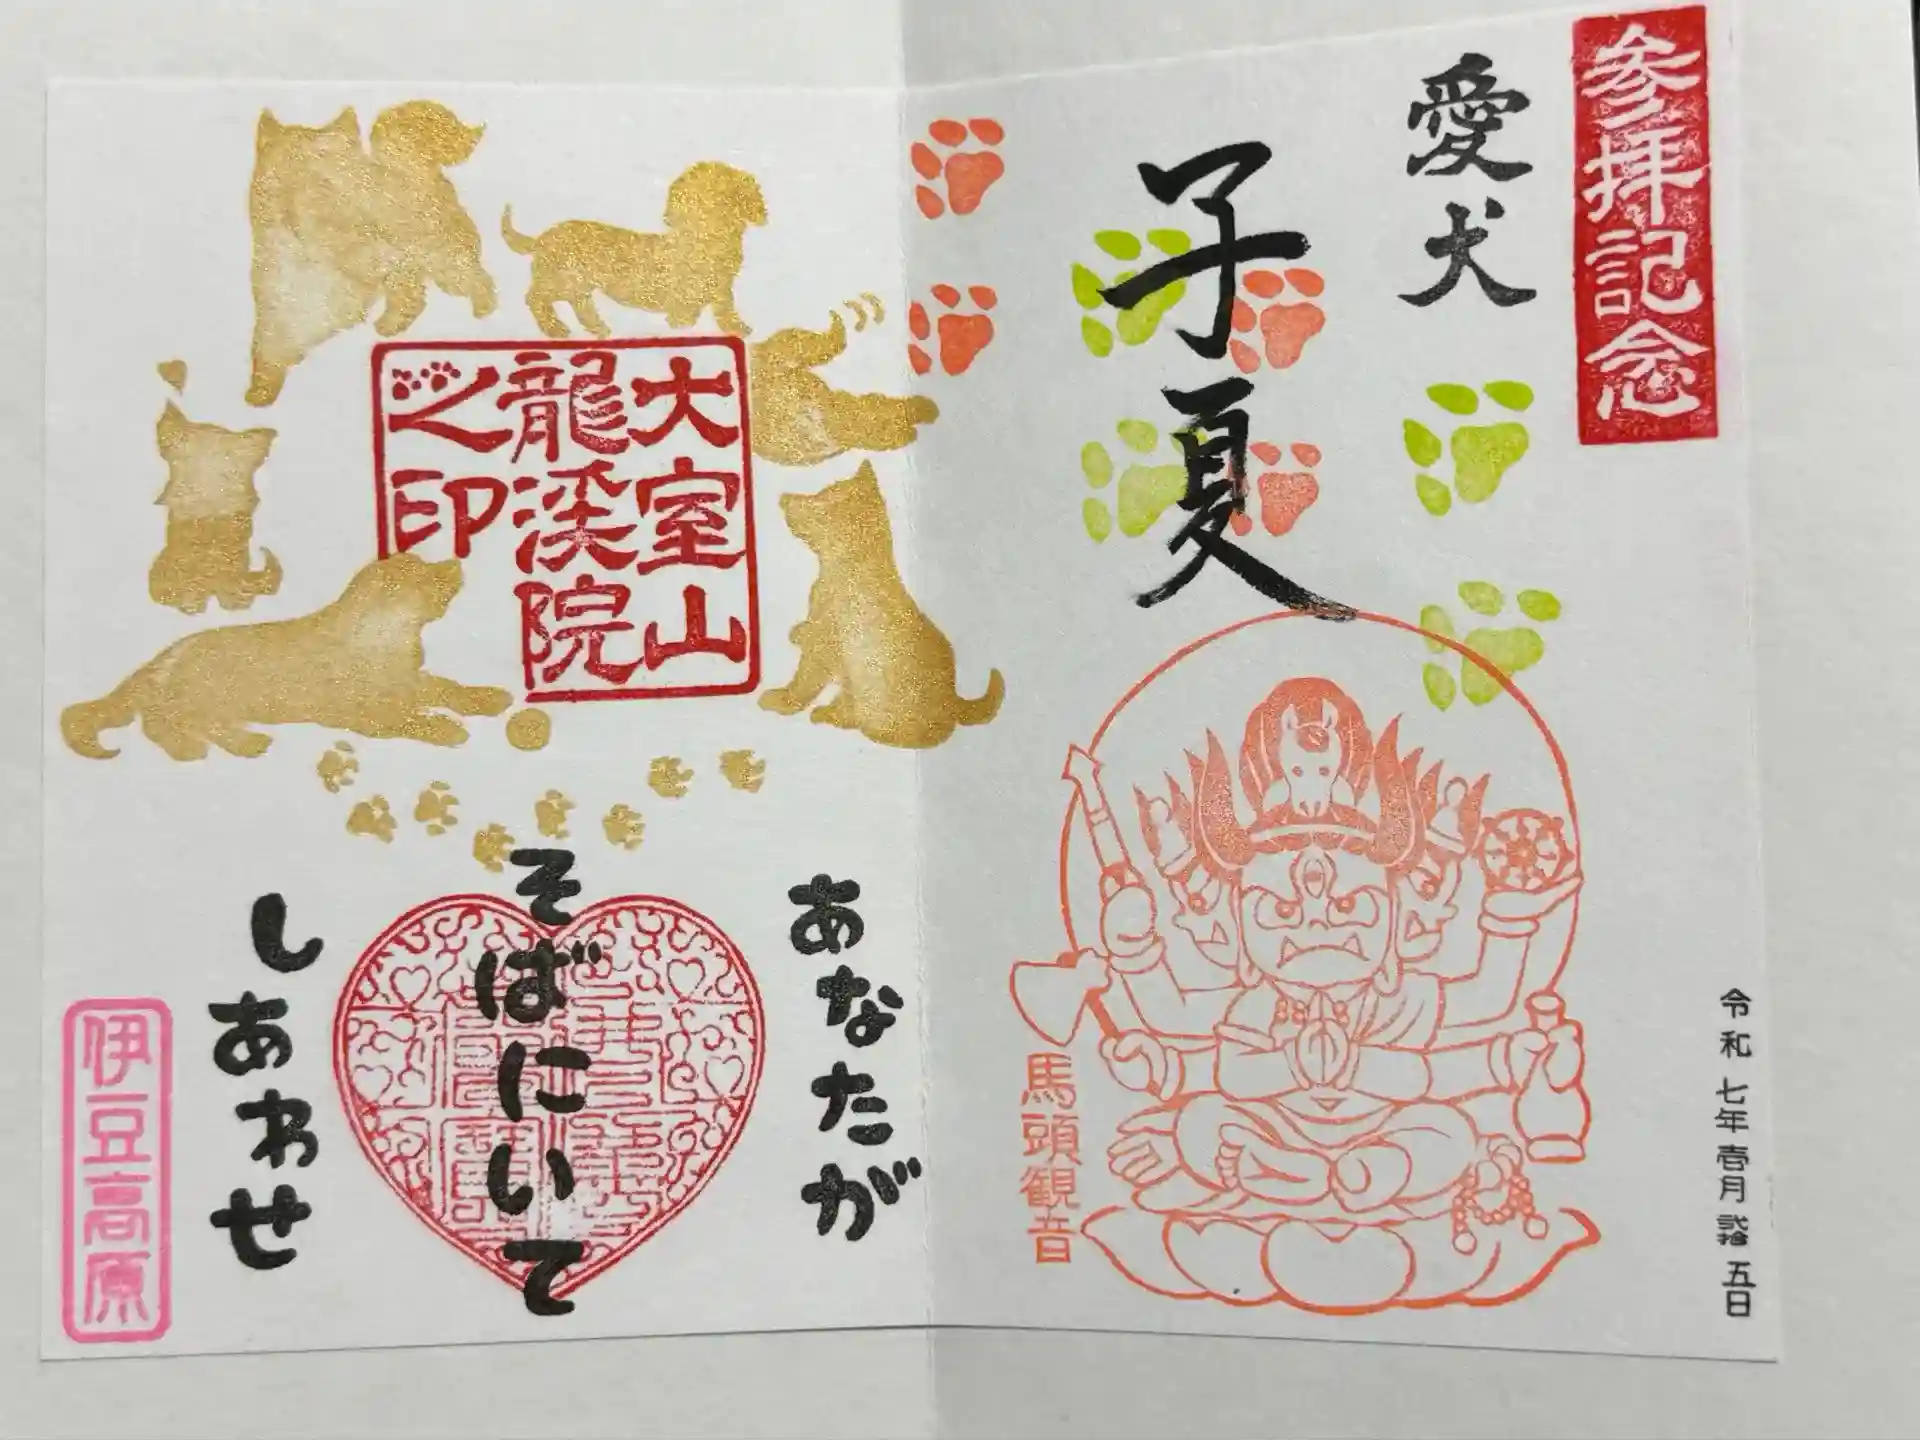 参拝記念
愛犬
子夏
令和七年壱月弐拾五日
馬頭観音
大室山
龍渓院
之印
あなたが
そばにいて
しあわせ
伊豆高原